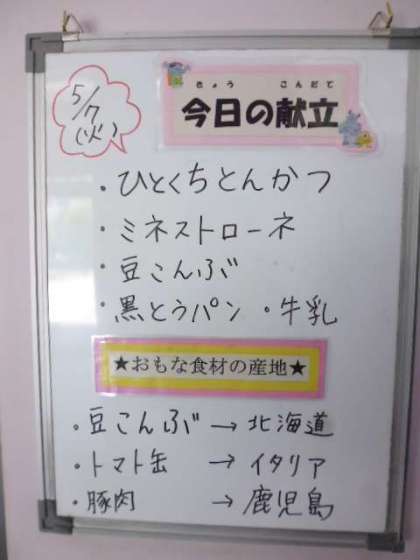 5/7
(火)
きょう こんだて
今日の献立
・ひとくちとんかつ
・ミネストローネ
・豆こんぶ
・黒とうパン ・牛乳
★おもな食材の産地★
・豆こんぶ→北海道
・トマト缶 →イタリア
・豚肉 →鹿児島